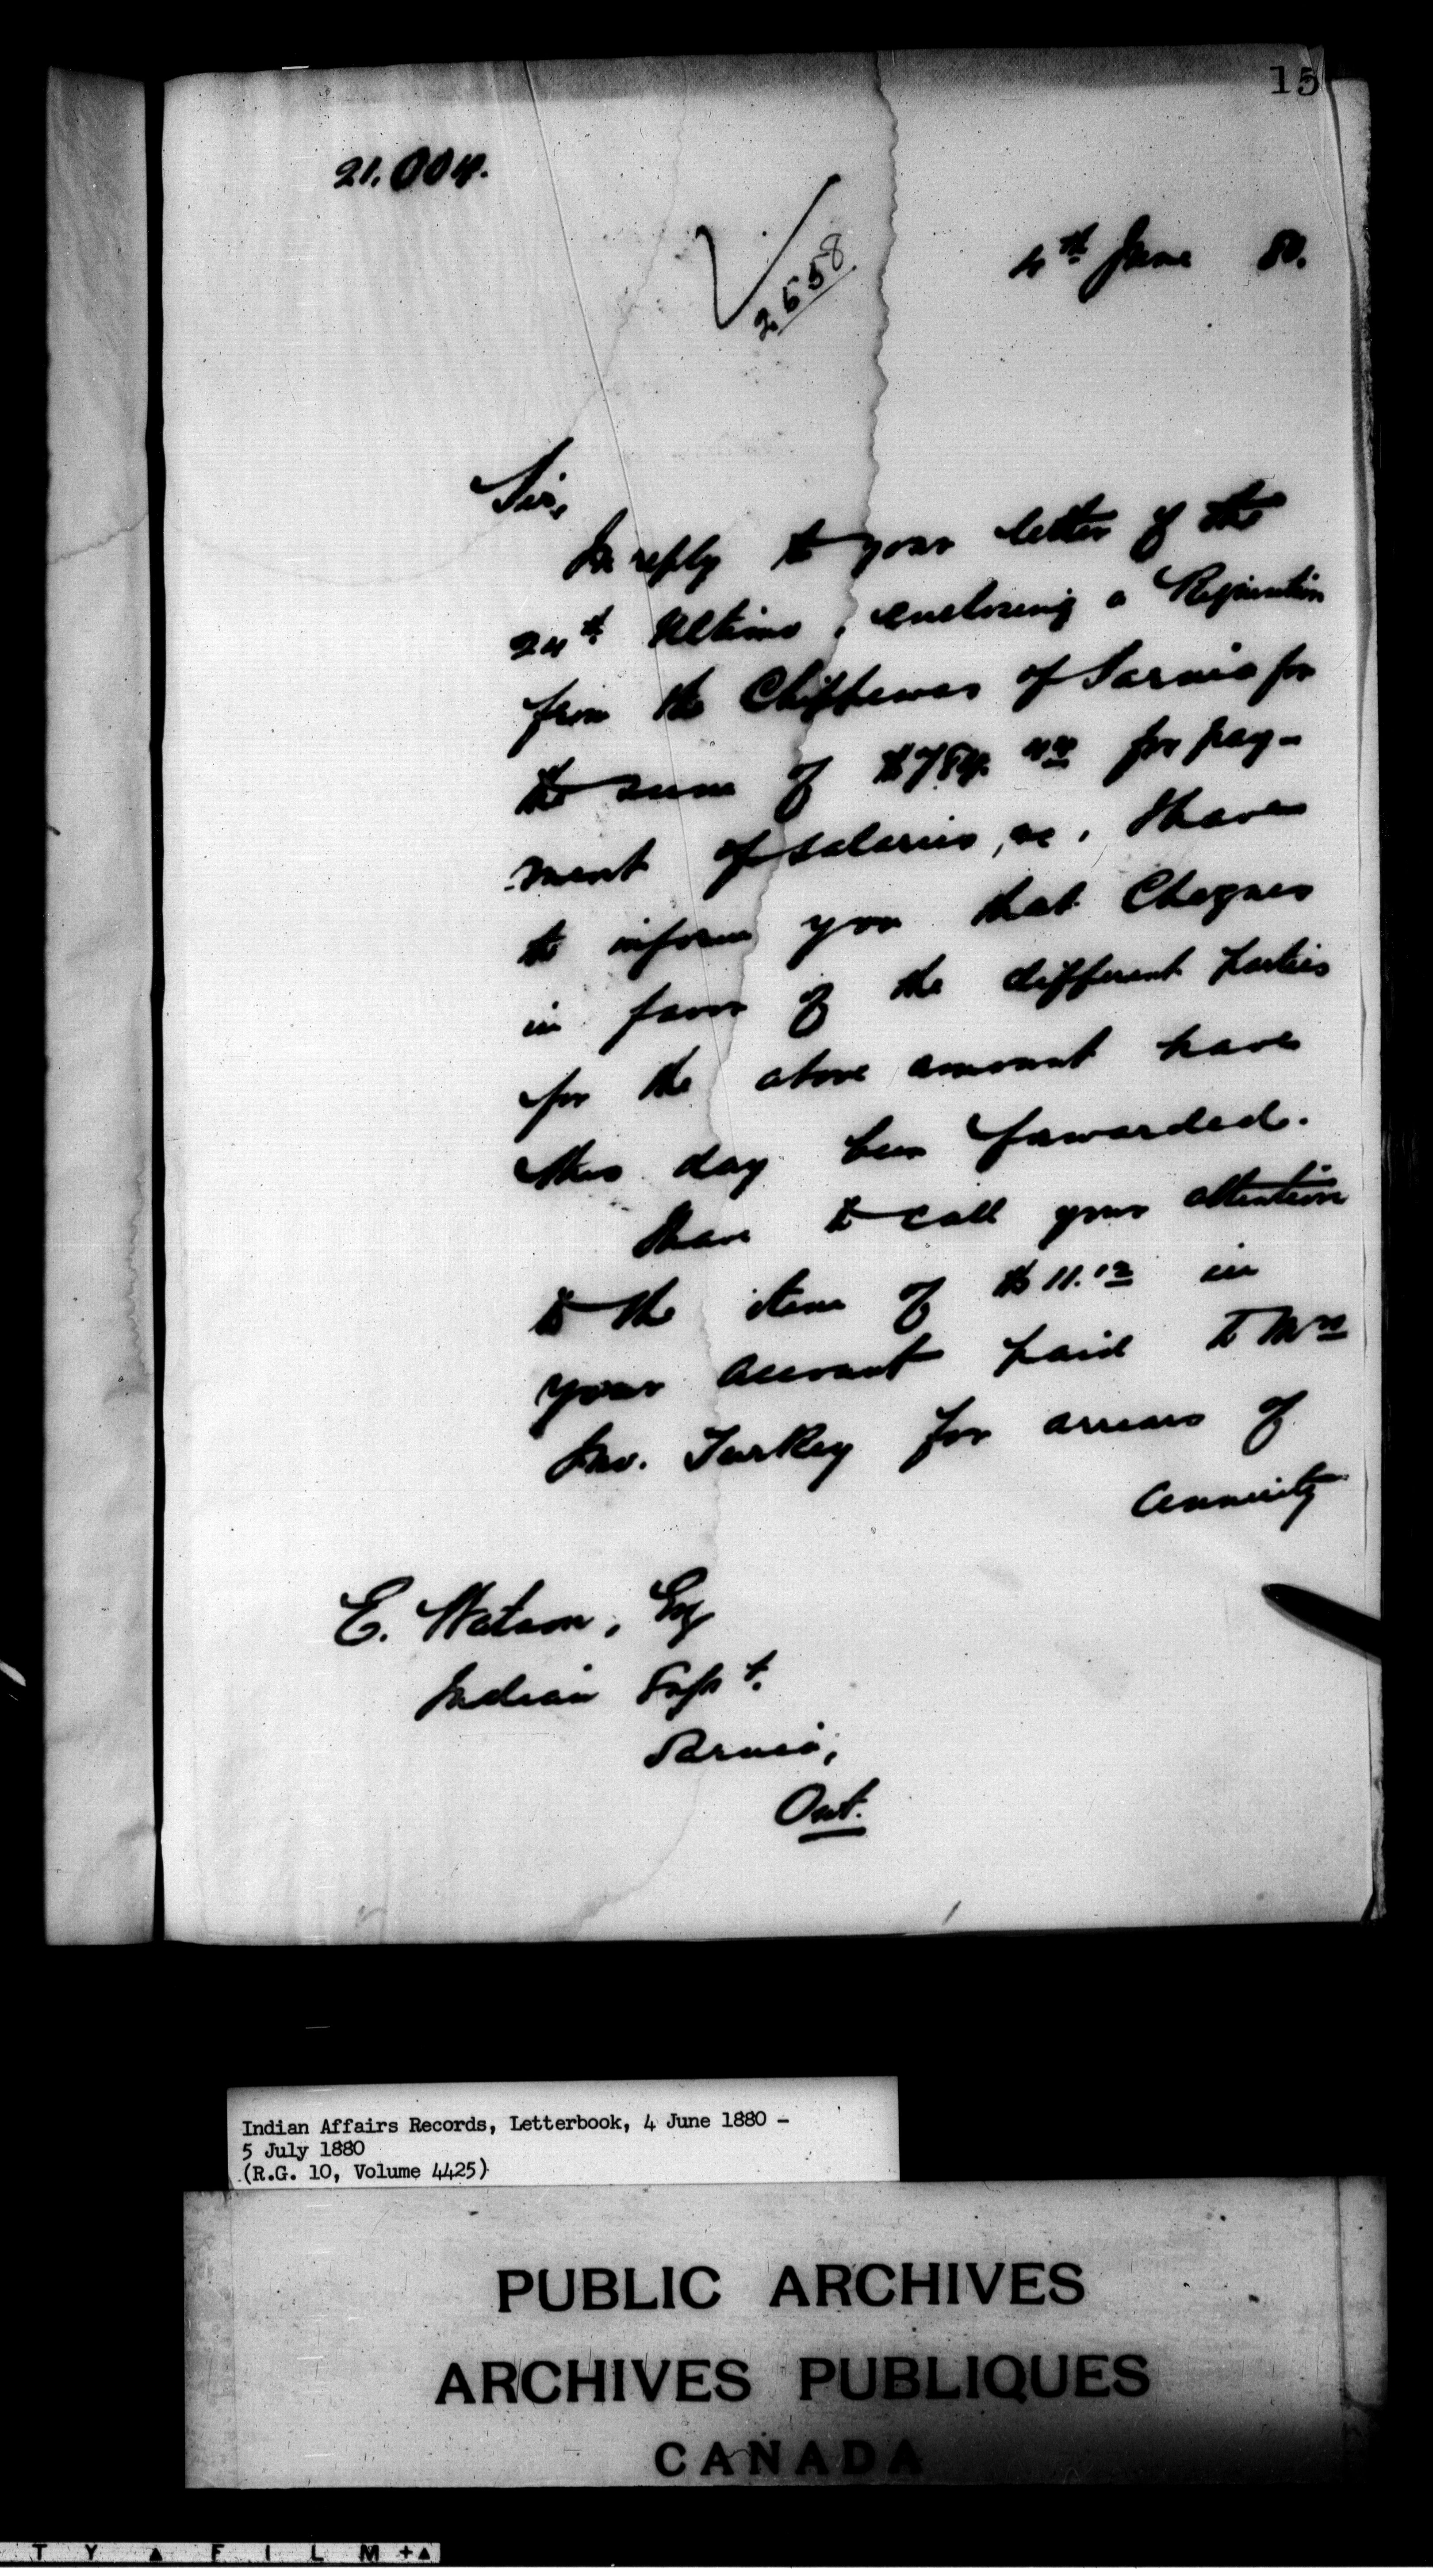 15
21.004.
2658
4th June 80.
Sir,
In reply to your letter of the
24th Ultimo, enclosing a Requisition
from the Chippewas of Sarnia for
the sum of $784.44 for pay-
ment of salaries, &c, I have
to inform you that Cheques
in favor of the different parties
for the above amount have
this day been forwarded.
I have to call your attention
to the item of $11.12 in
your account paid to Mrs
Jno. Turkey for arrears of
annuity
E. Watson, Esq
Indian Supt.
Sarnia,
Ont.
Indian Affairs Records, Letterbook, 4 June 1880 -
5 July 1880
(R.G. 10, Volume 4425)
PUBLIC ARCHIVES
ARCHIVES PUBLIQUES
CANADA
T Y ▲ F I L M +▲